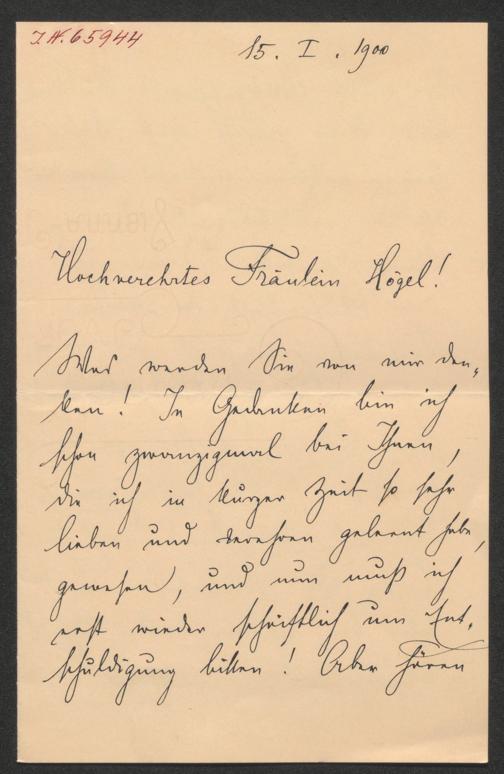 J.N. 65944
15. I. 1900
Hochverehrtes Fräulein Högel!
Was werden Sie von mir den„
ken! In Gedanken bin ich
schon zwanzigmal bei Ihnen,
die ich in kurzer Zeit so sehr
lieben und verehren gelernt habe,
gewesen, und nun muß ich
erst wieder schriftlich um Ent„
schuldigung bitten! Aber hören